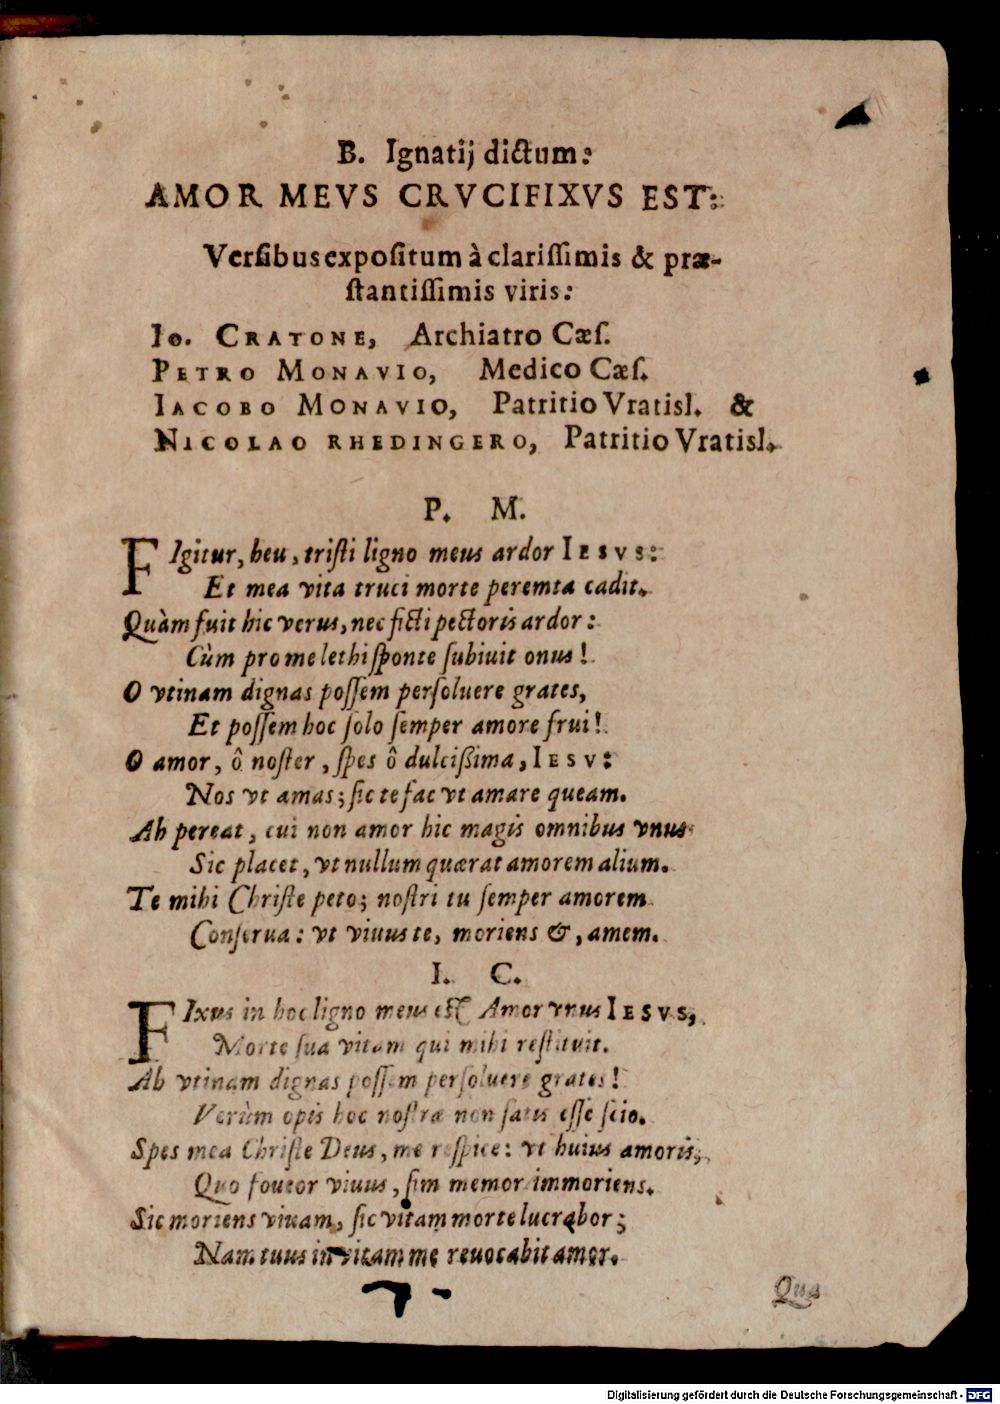 B. Ignatij dictum:
AMOR MEVS CRVCIFIXVS EST:
Verſibus expoſitum à clariſſimis & præ-
ſtantiſſimis viris:
Io. CRATONE, Archiatro Cæſ.
PETRO MONAVIO, Medico Cæſ.
IACOBO MONAVIO, Patritio Vratisl. &
NICOLAO RHEDINGERO, Patritio Vratisl.
P. M.
FIgitur, heu, triſti ligno meus ardor IESVS:
Et mea vita truci morte peremta cadit.
Quàm fuit hic verus, nec ficti pectoris ardor:
Cùm pro me lethi ſponte ſubiuit onus!
O vtinam dignas poſſem perſoluere grates,
Et poſſem hoc ſolo ſemper amore frui!
O amor, ô noſter, ſpes ô dulciſſima, IESV:
Nos vt amas; ſic te fac vt amare queam.
Ah pereat, cui non amor hic magis omnibus vnus
Sic placet, vt nullum quærat amorem alium.
Te mihi Chriſte peto; noſtri tu ſemper amorem
Conſerua: vt viuus te, moriens &, amem.
I. C.
FIxus in hoc ligno meus eſt Amor vnus IESVS,
Morte ſua vitam qui mihi reſtituit.
Ah vtinam dignas poſſem perſoluere grates!
Verùm opis hoc noſtræ non ſatis eſſe ſcio.
Spes mea Chriſte Deus, me reſpice: vt huius amoris,
Quo foueor viuus, ſim memor immoriens.
Sic moriens viuam, ſic vitam morte lucrabor;
Nam tuus in vitam me reuocabit amor.
Qua
Digitalisierung gefördert durch die Deutsche Forschungsgemeinschaft - DFG